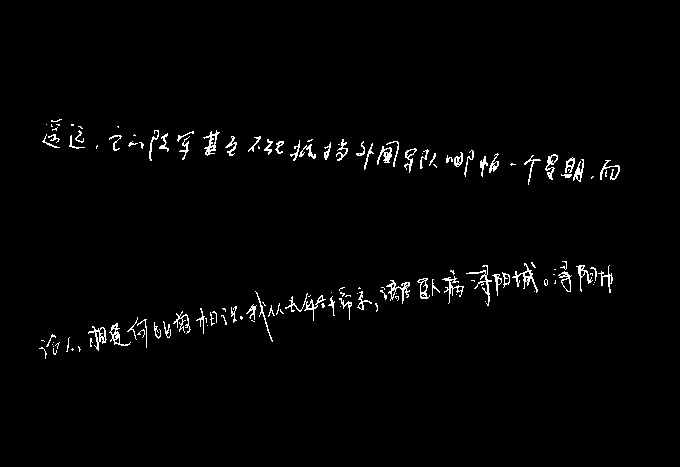 遥远,它的陆军甚至不能抵挡外国军队哪怕一个星期,而
沦人,相逢何必曾相识。我从去年辞帝京,谪居卧病浔阳城。浔阳地